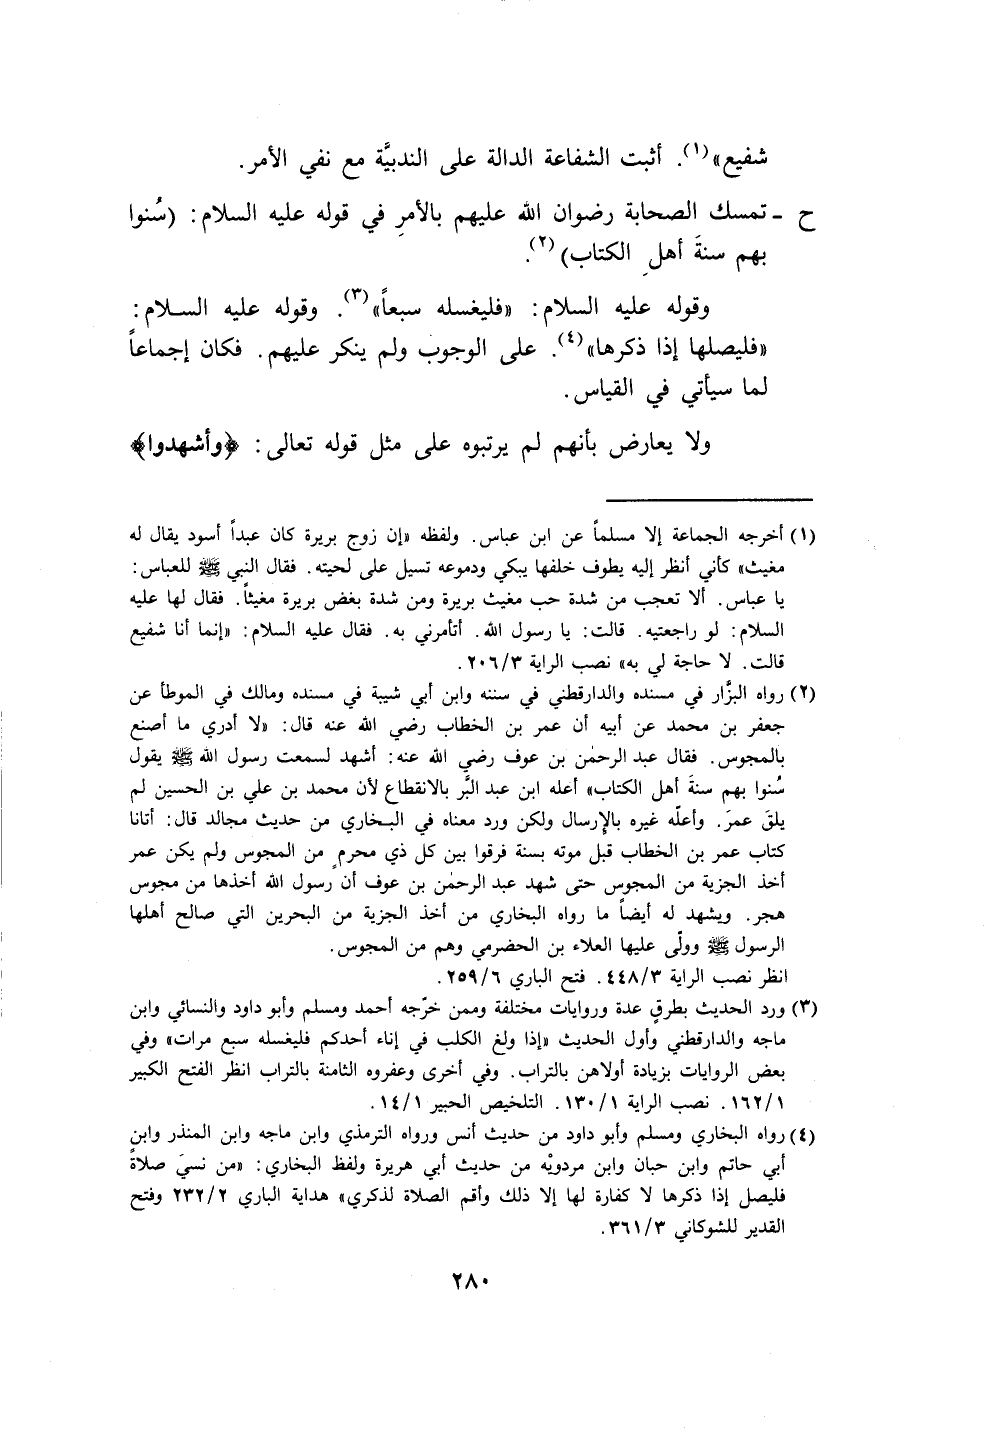 شفيع»(١). أثبت الشفاعة الدالة على الندبيَّة مع نفي الأمر.
ح ـ تمسك الصحابة رضوان الله عليهم بالأمرِ في قوله عليه السلام: (سُنوا
بهم سنةَ أهلِ الكتاب)(٢).
وقوله عليه السلام: «فليغسله سبعاً»(٣). وقوله عليه الســلام:
«فليصلها إذا ذكرها»(٤). على الوجوب ولم ينكر عليهم. فكان إجماعاً
لما سيأتي في القياس.
ولا يعارض بأنهم لم يرتبوه على مثل قوله تعالى: ﴿وأشهدوا﴾
(١) أخرجه الجماعة إلا مسلماً عن ابن عباس. ولفظه «إن زوج بريرة كان عبداً أسود يقال له
مغيث» كأني أنظر إليه يطوف خلفها يبكي ودموعه تسيل على لحيته. فقال النبي ﷺ للعباس:
يا عباس. ألا تعجب من شدة حب مغيث بريرة ومن شدة بغض بريرة مغيثاً. فقال لها عليه
السلام: لو راجعتيه. قالت: يا رسول الله. أتأمرني به. فقال عليه السلام: «إنما أنا شفيع
قالت. لا حاجة لي به» نصب الراية ٢٠٦/٣.
(٢) رواه البزَّار في مسنده والدارقطني في سننه وابن أبي شيبة في مسنده ومالك في الموطأ عن
جعفر بن محمد عن أبيه أن عمر بن الخطاب رضي الله عنه قال: «لا أدري ما أصنع
بالمجوس. فقال عبد الرحمٰن بن عوف رضي الله عنه: أشهد لسمعت رسول الله ﷺ يقول
سُنوا بهم سنةَ أهل الكتاب» أعله ابن عبد البَّر بالانقطاع لأن محمد بن علي بن الحسين لم
يلقَ عمرَ. وأعلّه غيره بالإِرسال ولكن ورد معناه في البـخاري من حديث مجالد قال: أتانا
كتاب عمر بن الخطاب قبل موته بسنة فرقوا بين كل ذي محرمٍ من المجوس ولم يكن عمر
أخذ الجزية من المجوس حتى شهد عبد الرحمٰن بن عوف أن رسول الله أخذها من مجوس
هجر. ويشهد له أيضاً ما رواه البخاري من أخذ الجزية من البحرين التي صالح أهلها
الرسول ﷺ وولّى عليها العلاء بن الحضرمي وهم من المجوس.
انظر نصب الراية ٤٤٨/٣. فتح الباري ٢٥٩/٦.
(٣) ورد الحديث بطرقٍ عدة وروايات مختلفة وممن خرّجه أحمد ومسلم وأبو داود والنسائي وابن
ماجه والدارقطني وأول الحديث «إذا ولغ الكلب في إناء أحدكم فليغسله سبع مرات» وفي
بعض الروايات بزيادة أولاهن بالتراب. وفي أخرى وعفروه الثامنة بالتراب انظر الفتح الكبير
١٦٢/١. نصب الراية ١٣٠/١. التلخيص الحبير ١٤/١.
(٤) رواه البخاري ومسلم وأبو داود من حديث أنس ورواه الترمذي وابن ماجه وابن المنذر وابن
أبي حاتم وابن حبان وابن مردويْه من حديث أبي هريرة ولفظ البخاري: «من نسيَ صلاةً
فليصل إذا ذكرها لا كفارة لها إلا ذلك وأقم الصلاة لذكري» هداية الباري ٢٣٢/٢ وفتح
القدير للشوكاني ٣٦١/٣.
٢٨٠